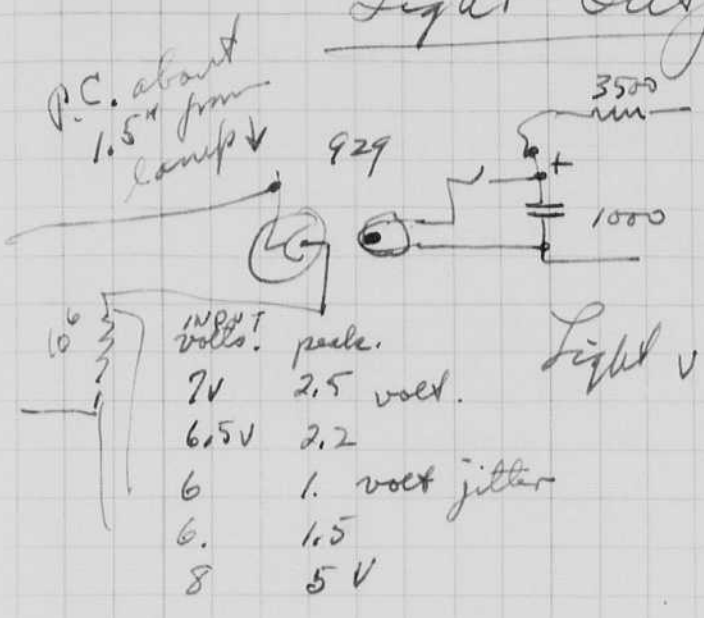 Light Out
P.C. about
1.5" from
lamp
929
3500
+
1000
10⁶
INPUT
volts. peak.
7V 2.5 volt.
6.5V 2.2
6 1. volt jitter
6. 1.5
8 5 V
Light v